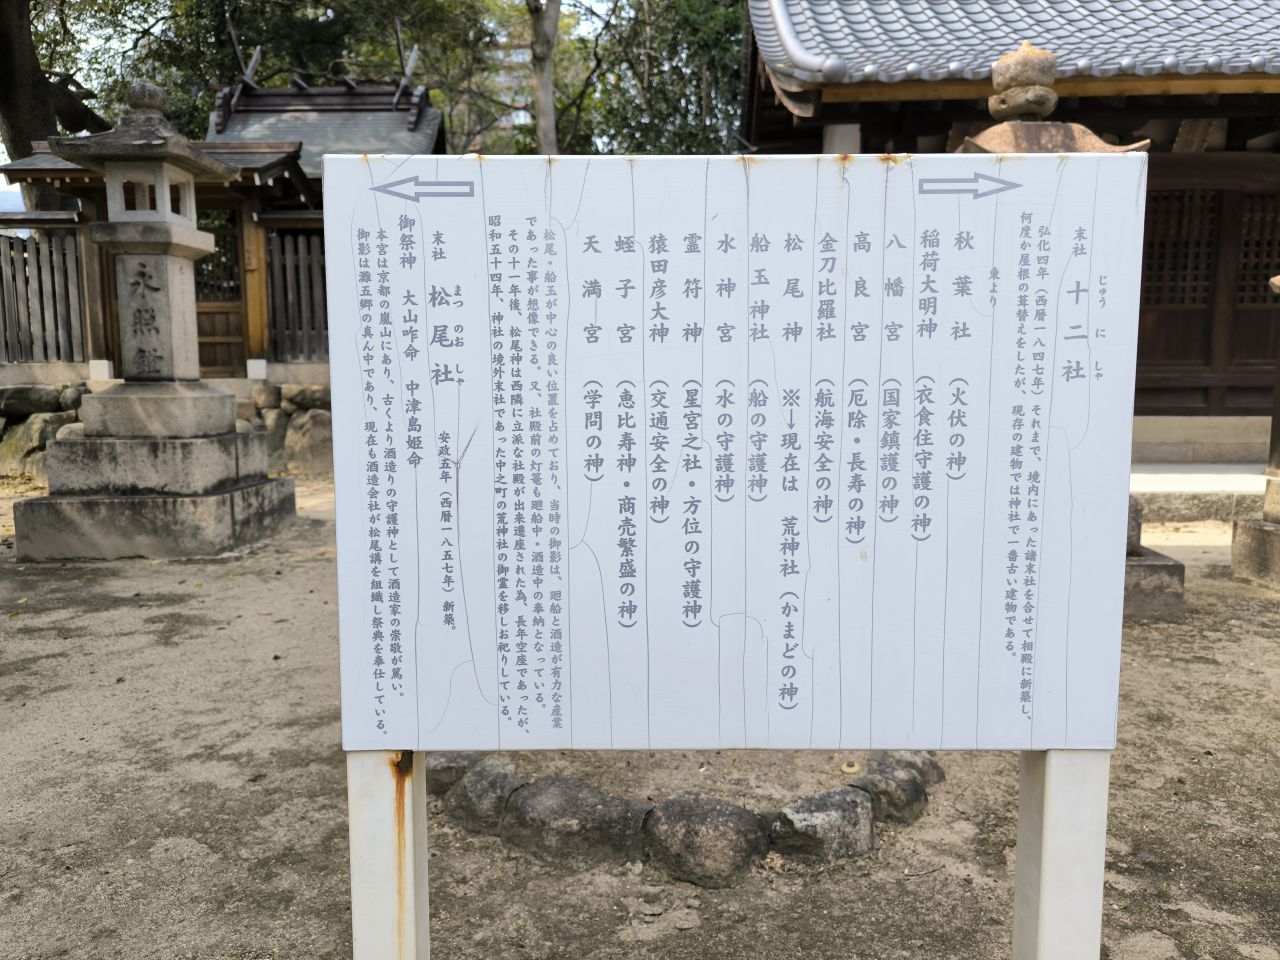 末社 十二社
じゅうにしゃ
弘化四年（西暦一八四七年）それまで、境内にあった諸末社を合せて相殿に新築し、
何度か屋根の葺替えをしたが、現存の建物では神社で一番古い建物である。
東より
秋葉社（火伏の神）
稲荷大明神（衣食住守護の神）
八幡宮（国家鎮護の神）
高良宮（厄除・長寿の神）
金刀比羅社（航海安全の神）
松尾神 ※→現在は 荒神社（かまどの神）
船玉神社（船の守護神）
水神宮（水の守護神）
霊符神（星宮之社・方位の守護神）
猿田彦大神（交通安全の神）
蛭子宮（恵比寿神・商売繁盛の神）
天満宮（学問の神）
松尾・船玉が中心の良い位置を占めており、当時の御影は、廻船と酒造が有力な産業
であった事が想像できる。又、社殿前の灯篭も廻船中・酒造中の奉納となっている。
その十一年後、松尾神は西隣に立派な社殿が出来遷座された為、長年空座であったが、
昭和五十四年、神社の境外末社であった中之町の荒神社の御霊を移しお祀りしている。
末社 松尾社 安政五年（西暦一八五七年）新築。
まつのおしゃ
御祭神 大山咋命 中津島姫命
本宮は京都の嵐山にあり、古くより酒造りの守護神として酒造家の崇敬が篤い。
御影は灘五郷の真ん中であり、現在も酒造会社が松尾講を組織し祭典を奉仕している。
永照